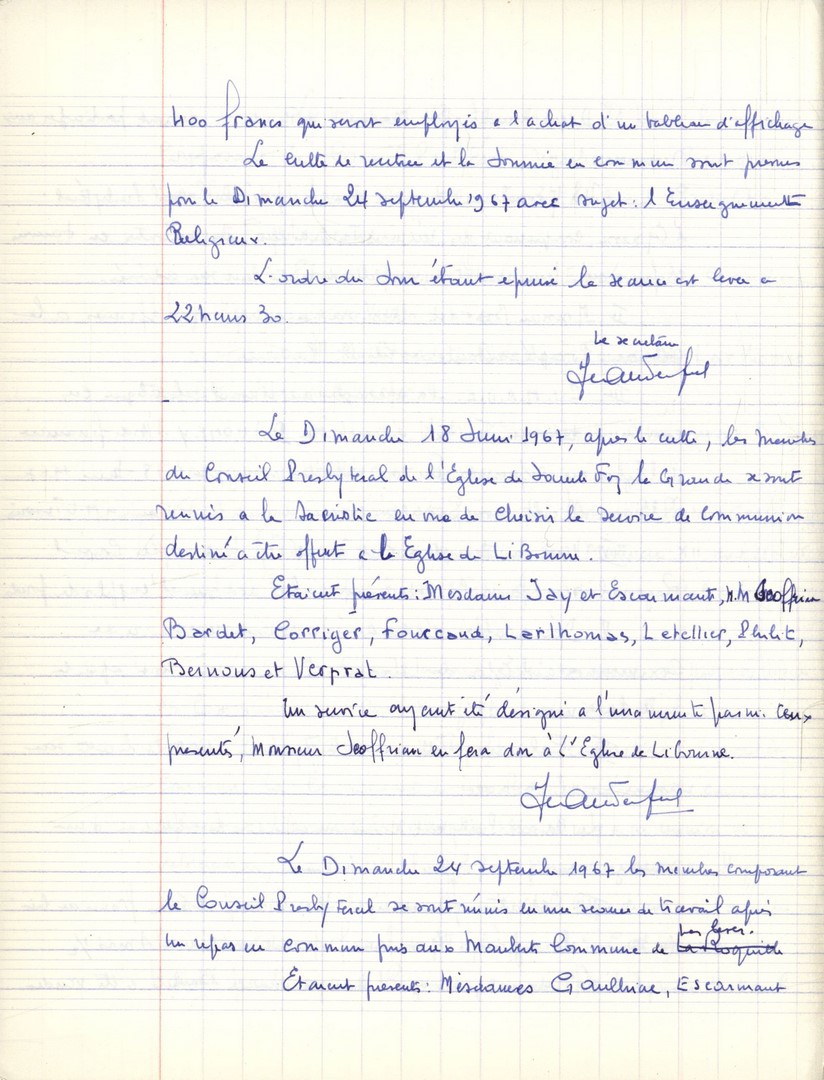 400 francs qui seront employés a l achat d'un tableau d'affichage
Le culte de rentree et la Journée en commun sont prevus
pour le Dimanche 24 septembre 1967 avec sujet : l Enseignement
Religieux.
L'ordre du Jour étant epuisé la seance est levee a
22 heures 30.
Le secretaire
Le Dimanche 18 Juin 1967, apres le culte, les membres
du Conseil Presbyteral de l'Eglise de Sainte Foy la Grande se sont
reunis a la Sacristie en vue de choisir le service de Communion
destiné a être offert a la Eglise de LiBourne.
Etaient présents : Mesdames Jay et Escarmant, M.M Jeoffrian
Bardet, Corriger, Fourcaud, Larlhomas, Letellier, Philit,
Bernous et Verprat.
Un service ayant été désigné a l'unanimité parmi ceux
presentés, Monsieur Jeoffrian en fera don à l'Eglise de Libourne.
Le Dimanche 24 septembre 1967 les membres composant
le Conseil Presbyteral se sont réunis en une seance de travail après
un repas en commun pris aux Mauberts Commune de La Roquille
Les Leves.
Etaient presents : Mesdames Gaulhiac, Escarmant